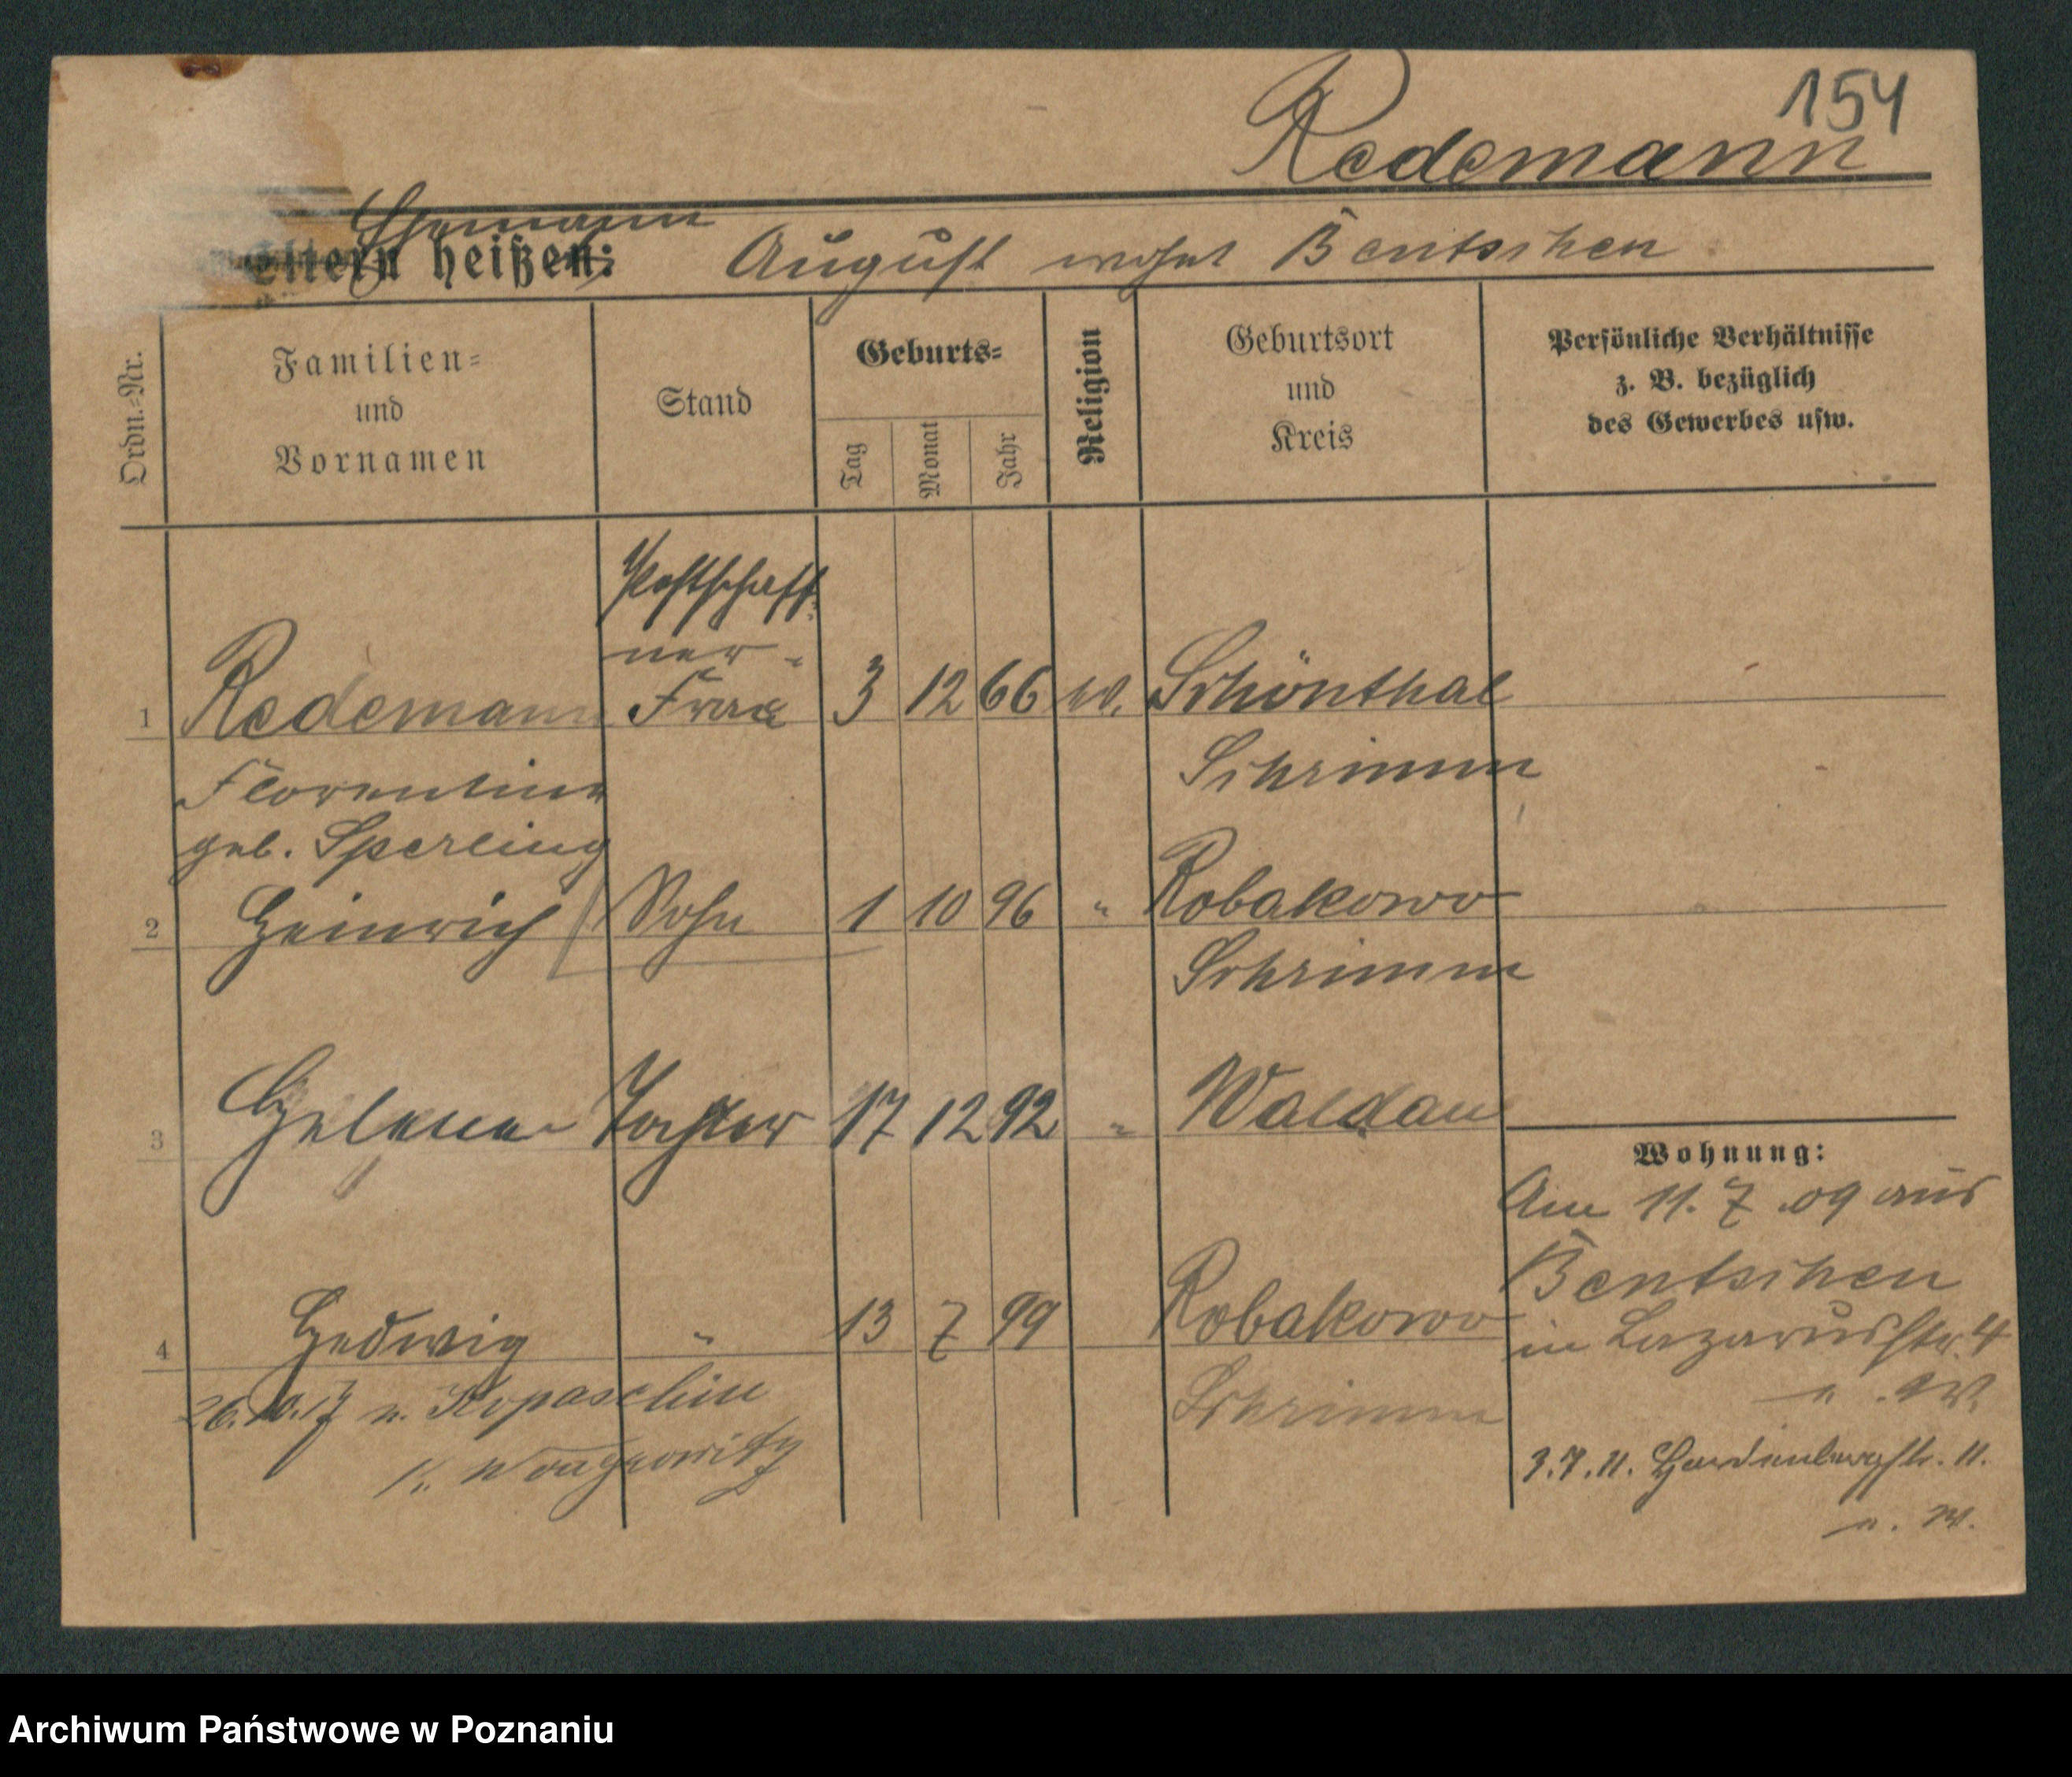 154
Redemann
Ehemann
Eltern heißen: August wohnt Bentschen
Ordn.=Nr.
Familien=
und
Vornamen
Stand
Geburts=
Tag
Monat
Jahr
Religion
Geburtsort
und
Kreis
Persönliche Verhältnisse
z. B. bezüglich
des Gewerbes usw.
Postschaff
ner-
1 Redemann Frau 3 12 66 ev. Schönthal
Florentine Schrimm
geb. Sperling
2 Heinrich Sohn 1 10 96 " Robakowo
Schrimm
3 Helene Tochter 17 12 92 " Waldau
4 Hedwig " 13 7 99 Robakowo
Schrimm
26.10.17 n. Kopaschin
K. Wongrowitz
Wohnung:
Am 11.7.09 aus
Bentschen
in Lazarusstr. 4
3.7.11. Hardenbergstr. 11.